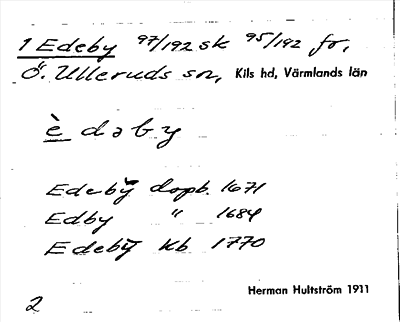 1 Edeby 97/192 sk 95/192 fr,
Ö. Ulleruds sn, Kils hd, Värmlands län
è dəby
Edebÿ dopb. 1671
Edby " 1684
Edebÿ Kb 1770
Herman Hultström 1911
2